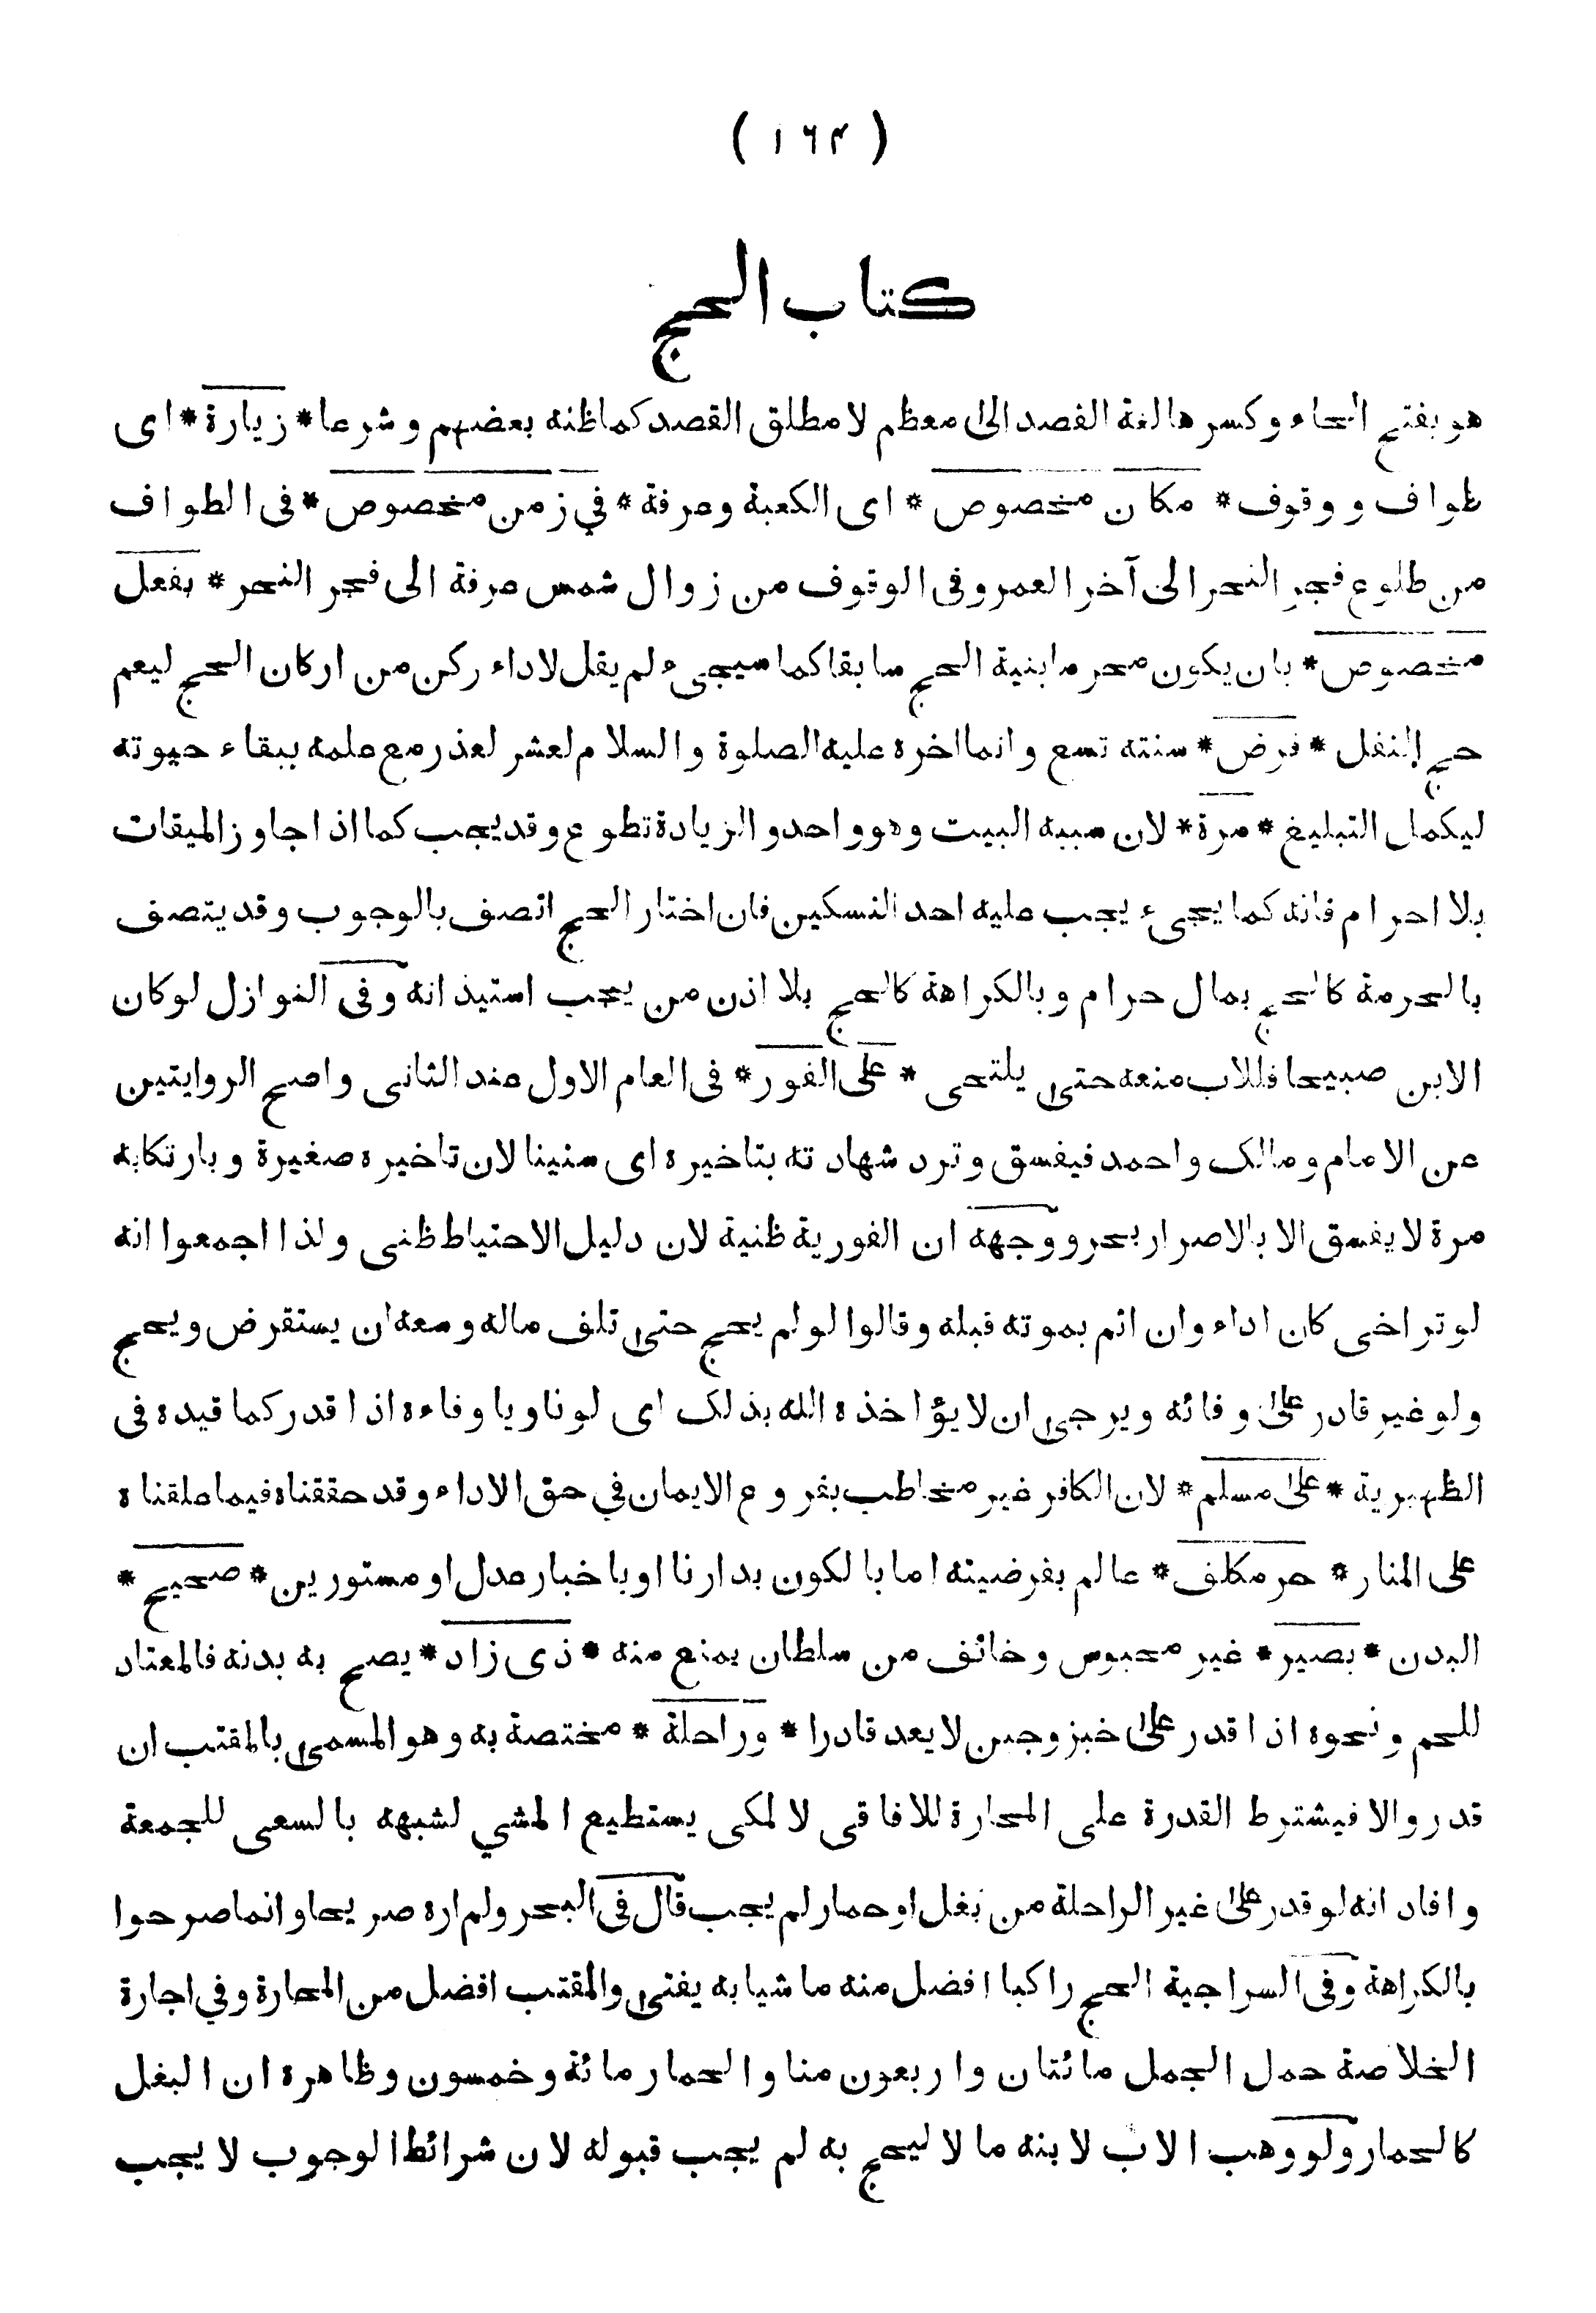 ( ۱۶۴ )
كتاب الحج
هو بفتح الحاء وكسرها لغة القصد الى معظم لا مطلق القصد كما ظنه بعضهم وشرعا * زيارة * اى
طواف ووقوف * مكان مخصوص * اى الكعبة وعرفة * في زمن مخصوص * فى الطواف
من طلوع فجر النحر الى آخر العمر وفى الوقوف من زوال شمس عرفة الى فجر النحر * بفعل
مخصوص * بان يكون محرما بنية الحج سابقا كما سيجىء لم يقل لاداء ركن من اركان الحج ليعم
حج النفل * فرض * سنته تسع وانما اخره عليه الصلوة والسلام لعشر لعذر مع علمه ببقاء حيوته
ليكمل التبليغ * مرة * لان سببه البيت وهو واحد والزيادة تطوع وقد يجب كما اذا جاوز الميقات
بلا احرام فانه كما يجىء يجب عليه احد النسكين فان اختار الحج اتصف بالوجوب وقد يتصف
بالحرمة كالحج بمال حرام وبالكراهة كالحج بلا اذن من يجب استيذانه وفى النوازل لو كان
الابن صبيحا فللاب منعه حتى يلتحى * على الفور * فى العام الاول عند الثانى واصح الروايتين
عن الامام ومالك واحمد فيفسق وترد شهادته بتاخيره اى سنينا لان تاخيره صغيرة وبارتكابه
مرة لا يفسق الا بالاصرار بحر ووجهه ان الفورية ظنية لان دليل الاحتياط ظنى ولذا اجمعوا انه
لو تراخى كان اداء وان اثم بموته قبله وقالوا لو لم يحج حتى تلف ماله وسعه ان يستقرض ويحج
ولو غير قادر على وفائه ويرجى ان لا يؤاخذه الله بذلك اى لو ناويا وفاءه اذا قدر كما قيده فى
الظهيرية * على مسلم * لان الكافر غير مخاطب بفروع الايمان في حق الاداء وقد حققناه فيما علقناه
على المنار * حر مكلف * عالم بفرضيته اما بالكون بدارنا او باخبار عدل او مستورين * صحيح *
البدن * بصير * غير محبوس وخائف من سلطان يمنع منه * ذى زاد * يصح به بدنه فالمعتاد
للحم ونحوه اذا قدر على خبز وجبن لا يعد قادرا * وراحلة * مختصة به وهو المسمى بالمقتب ان
قدر والا فيشترط القدرة على المحارة للافاقى لا لمكى يستطيع المشي لشبهه بالسعى للجمعة
وافاد انه لو قدر على غير الراحلة من بغل او حمار لم يجب قال فى البحر ولم اره صريحا وانما صرحوا
بالكراهة وفى السراجية الحج راكبا افضل منه ماشيا به يفتى والمقتب افضل من المحارة وفي اجارة
الخلاصة حمل الجمل مائتان واربعون منا والحمار مائة وخمسون وظاهره ان البغل
كالحمار ولو وهب الاب لابنه مالا ليحج به لم يجب قبوله لان شرائط الوجوب لا يجب